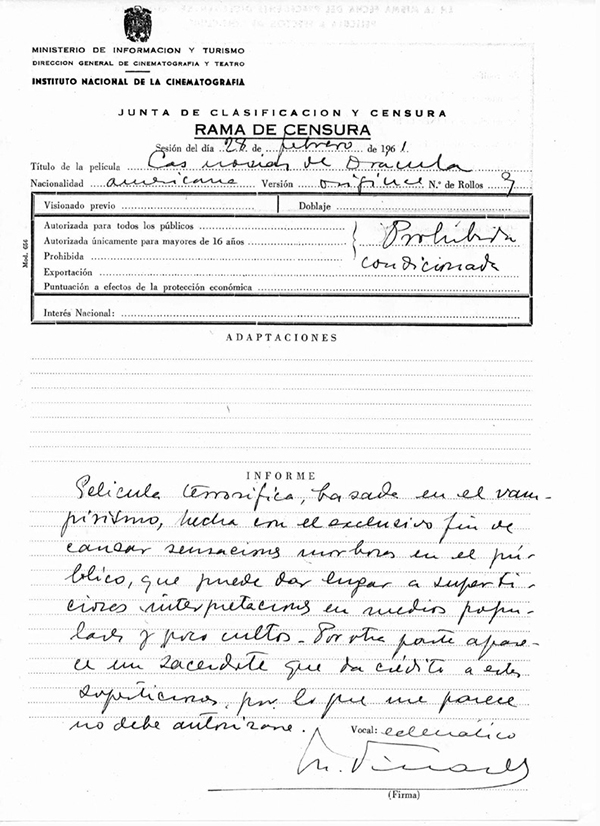 MINISTERIO DE INFORMACION Y TURISMO
DIRECCION GENERAL DE CINEMATOGRAFIA Y TEATRO
INSTITUTO NACIONAL DE LA CINEMATOGRAFIA
JUNTA DE CLASIFICACION Y CENSURA
RAMA DE CENSURA
Sesión del día 28 de febrero de 1961
Título de la película Las novias de Dracula
Nacionalidad americana Versión N.º de Rollos 9
Visionado previo Doblaje
Autorizada para todos los públicos
Autorizada únicamente para mayores de 16 años
Prohibida
Prohibida
condicionada
Exportación
Puntuación a efectos de la protección económica
Interés Nacional:
Mod. 656
ADAPTACIONES
INFORME
Película terrorifica, basada en el vam-
pirismo, hecha con el exclusivo fin de
causar sensaciones morbosas en el pú-
blico, que puede dar lugar a superti-
ciosas interpretaciones en medios popu-
lares y poco cultos - Por otra parte apare-
ce un sacerdote que da crédito a estas
supersticiones, por lo que me parece
no debe autorizarse.
Vocal: eclesiástico
(Firma)